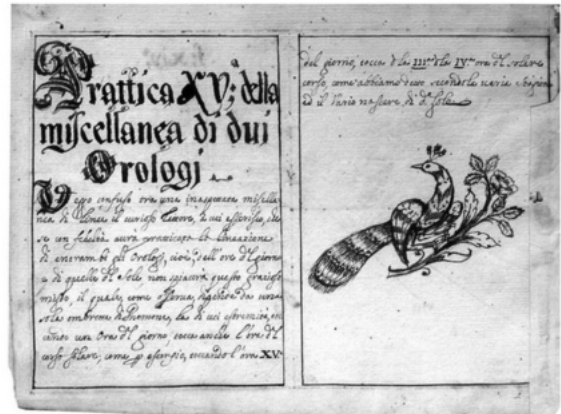 Prattica XV; della
miscellanea di dui
Orologi
confuso ora una inaspettata miscella-
nea di Linee il curioso Lettore, à cui asserisco, che
se con fedeltà avrà pratticato la lineazione
di entrambi gli Orologi, cioè, dell'ore d'l giorno
e di quelle d'l sole non spiacerà questo grazioso
misto, il quale, come osserva, si genera da una
sola ombra di Gnomone, la di cui estremità, toc
cando un' Ora d'l giorno, tocca anche l'ora d'l
corso solare, come p esempio, toccando l'ora XV.
del giorno, tocca d le III. d le IV. ore d'l solare
corso, come abbiamo detto secondo le varie stagioni
ed il vario nascere di d. sole